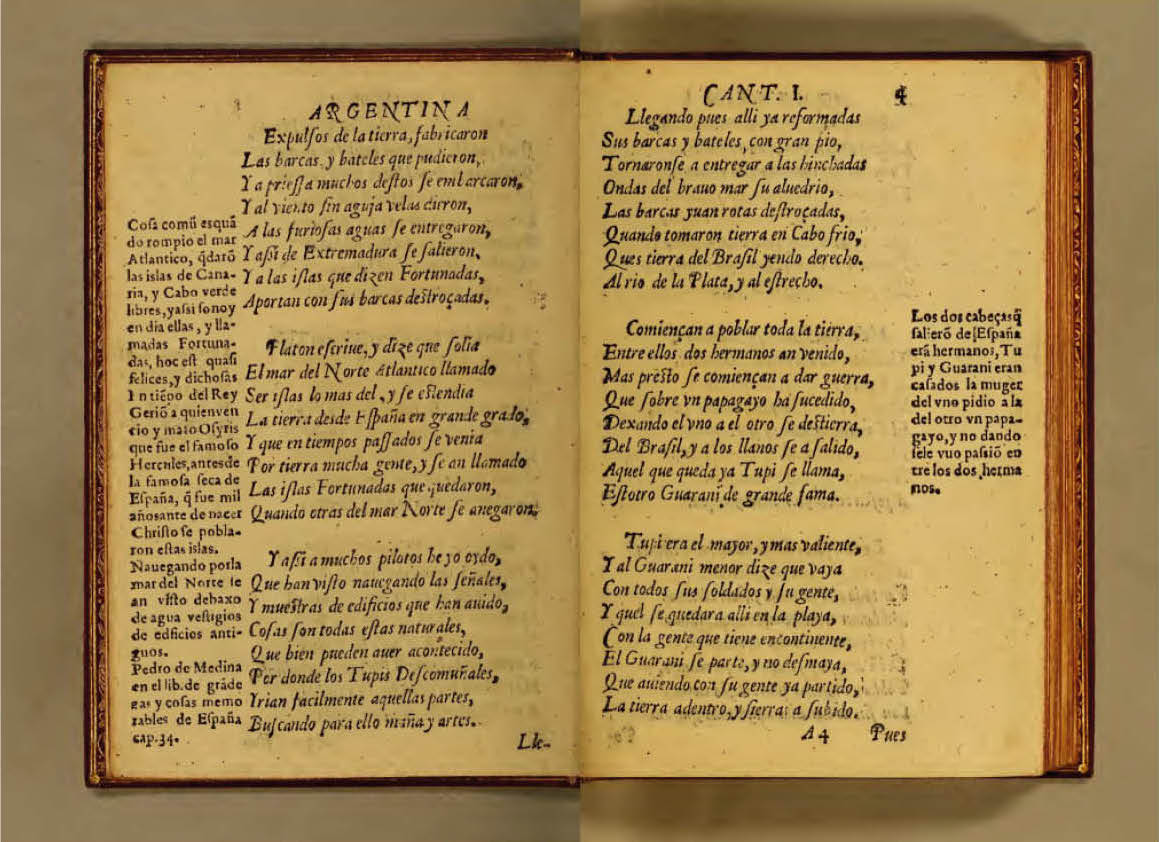 ARGENTINA
Expulſos de la tierra, fabricaron
Las barcas, y bateles que pudieron,
Y a prieſſa muchos deſtos ſe embarcaron,
Y al viento ſin aguja velas dieron,
A las furioſas aguas ſe entregaron,
Y aſsi de Extremadura ſe ſalieron,
Y a las iſlas que dizen Fortunadas,
Aportan con ſus barcas deſtroçadas.
Platon eſcriue, y dize que ſolia
El mar del Norte Atlantico llamado
Ser iſlas lo mas del, y ſe eſtendia
La tierra desde Eſpaña en grande grado,
Y que en tiempos paſſados ſe venia
Por tierra mucha gente, y ſe an llamado
Las iſlas Fortunadas que quedaron,
Quando otras del mar Norte ſe anegaron.
Y aſsi a muchos pilotos he yo oydo,
Que han viſto nauegando las ſeñales,
Y mueſtras de edificios que han auido,
Coſas ſon todas eſtas naturales,
Que bien pueden auer acontecido,
Por donde los Tupis Deſcomuñales,
Yrian facilmente aquellas partes,
Buſcando para ello maña y artes.
Lle-
Coſa comũ es quã
do rompio el mar
Atlantico, q̃darõ
las islas de Cana-
ria, y Cabo verde
libres, yaſsi ſonoy
en dia ellas, y lla-
madas Fortuna-
das, hoc eſt quaſi
felices, y dichoſas
In tiẽpo del Rey
Geriõ a quien ven
cio y mato Oſyris
que fue el famoſo
Hercules, antes de
la famoſa ſeca de
Eſpaña, q̃ fue mil
años ante de nacer
Chriſto ſe pobla-
ron eſtas islas.
Nauegando por la
mar del Norte ſe
an viſto debaxo
de agua veſtigios
de edficios anti-
guos.
Pedro de Medina
en el lib. de grãde
gas y coſas memo
rables de Eſpaña
cap. 34.
CANT. I. 4
Llegando pues alli ya reformadas
Sus barcas y bateles, con gran pio,
Tornaronſe a entregar a las hinchadas
Ondas del brauo mar ſu aluedrio,
Las barcas yuan rotas deſtroçadas,
Quando tomaron tierra en Cabo frio,
Ques tierra del Braſil yendo derecho.
Al rio de la Plata, y al eſtrecho.
Comiençan a poblar toda la tierra,
Entre ellos dos hermanos an venido,
Mas preſto ſe comiençan a dar guerra,
Que ſobre vn papagayo ha ſucedido,
Dexando el vno a el otro ſe deſtierra,
Del Braſil, y a los llanos ſe a ſalido,
Aquel que queda ya Tupi ſe llama,
Eſtotro Guarani de grande fama.
Tupi era el mayor, y mas valiente,
Y al Guarani menor dize que vaya
Con todos ſus ſoldados y ſu gente,
Y quel ſe quedara alli en la playa,
Con la gente que tiene encontinente,
El Guarani ſe parte, y no deſmaya,
Que auiendo con ſu gente ya partido,
La tierra adentro, y ſierras a ſubido.
A 4 Pues
Los dos cabeças q̃
ſalierõ de Eſpaña
erã hermanos, Tu
pi y Guarani eran
caſados la muger
del vno pidio a la
del otro vn papa-
gayo, y no dando
ſele vuo paſsiõ en
tre los dos herma
nos.